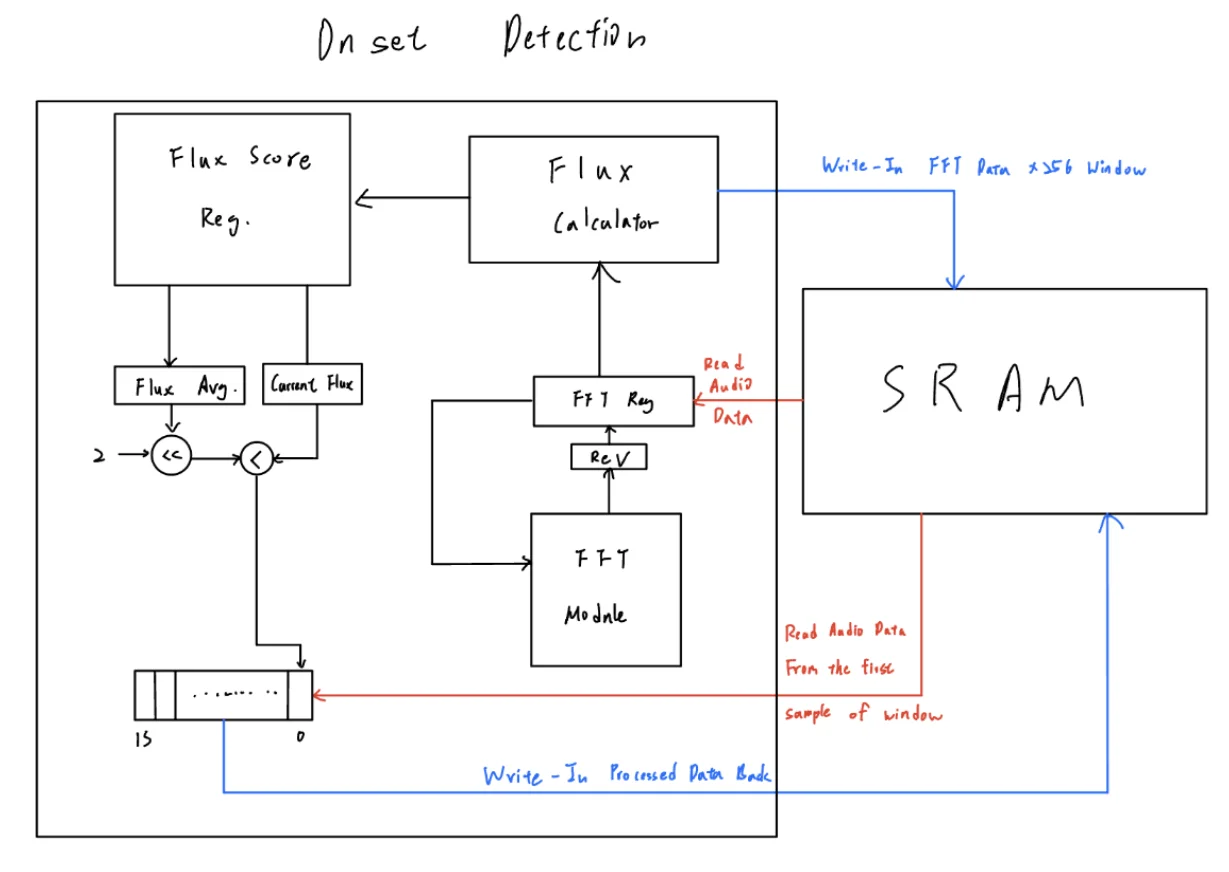 Onset Detection
Flux Score
Reg.
Flux
Calculator
Write-In FFT Data x256 Window
SRAM
Read
Audio
Data
Flux Avg.
Current Flux
FFT Reg
2
<<
<
Rev
FFT
Module
Read Audio Data
From the first
sample of window
15
0
Write-In Processed Data Back